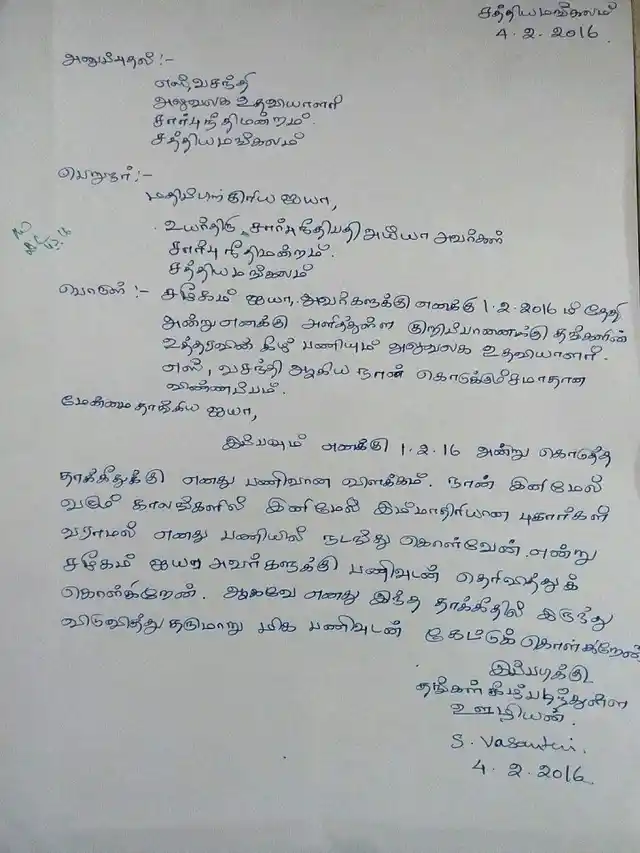 சத்தியமங்கலம்
4.2.2016
அனுப்புதல் :-
எஸ், வசந்தி
அலுவலக உதவியாளர்
சார்பு நீதிமன்றம்.
சத்தியமங்கலம்
பெறுநர் :-
மதிப்பிற்குரிய ஐயா,
உயர்திரு சார்பு நீதிபதி அய்யா அவர்கள்
சார்பு நீதிமன்றம்.
சத்தியமங்கலம்
பொருள் :- சமூகம் ஐயா, அவர்களுக்கு எனக்கு 1.2.2016 ம் தேதி
அன்று எனக்கு அளித்துள்ள குறிப்பாணைக்கு தங்களின்
உத்தரவின் கீழ் பணியும் அலுவலக உதவியாளர்.
எஸ், வசந்தி ஆகிய நான் கொடுக்கும் சமாதான
விண்ணப்பம்.
மேன்மை தாங்கிய ஐயா,
இப்பவும் எனக்கு 1.2.16 அன்று கொடுத்த
தாக்கீதுக்கு எனது பணிவான விளக்கம். நான் இனிமேல்
வரும் காலங்களில் இனிமேல் இம்மாதிரியான புகார்கள்
வராமல் எனது பணியில் நடந்து கொள்வேன். என்று
சமூகம் ஐயா அவர்களுக்கு பணிவுடன் தெரிவித்துக்
கொள்கிறேன். ஆகவே எனது இந்த தாக்கீதில் இருந்து
விடுவித்து தருமாறு மிக பணிவுடன் கேட்டுக் கொள்கிறேன்
இப்படிக்கு
தங்கள் கீழ்படிந்துள்ள
ஊழியன்.
S. Vasanthi.
4.2.2016